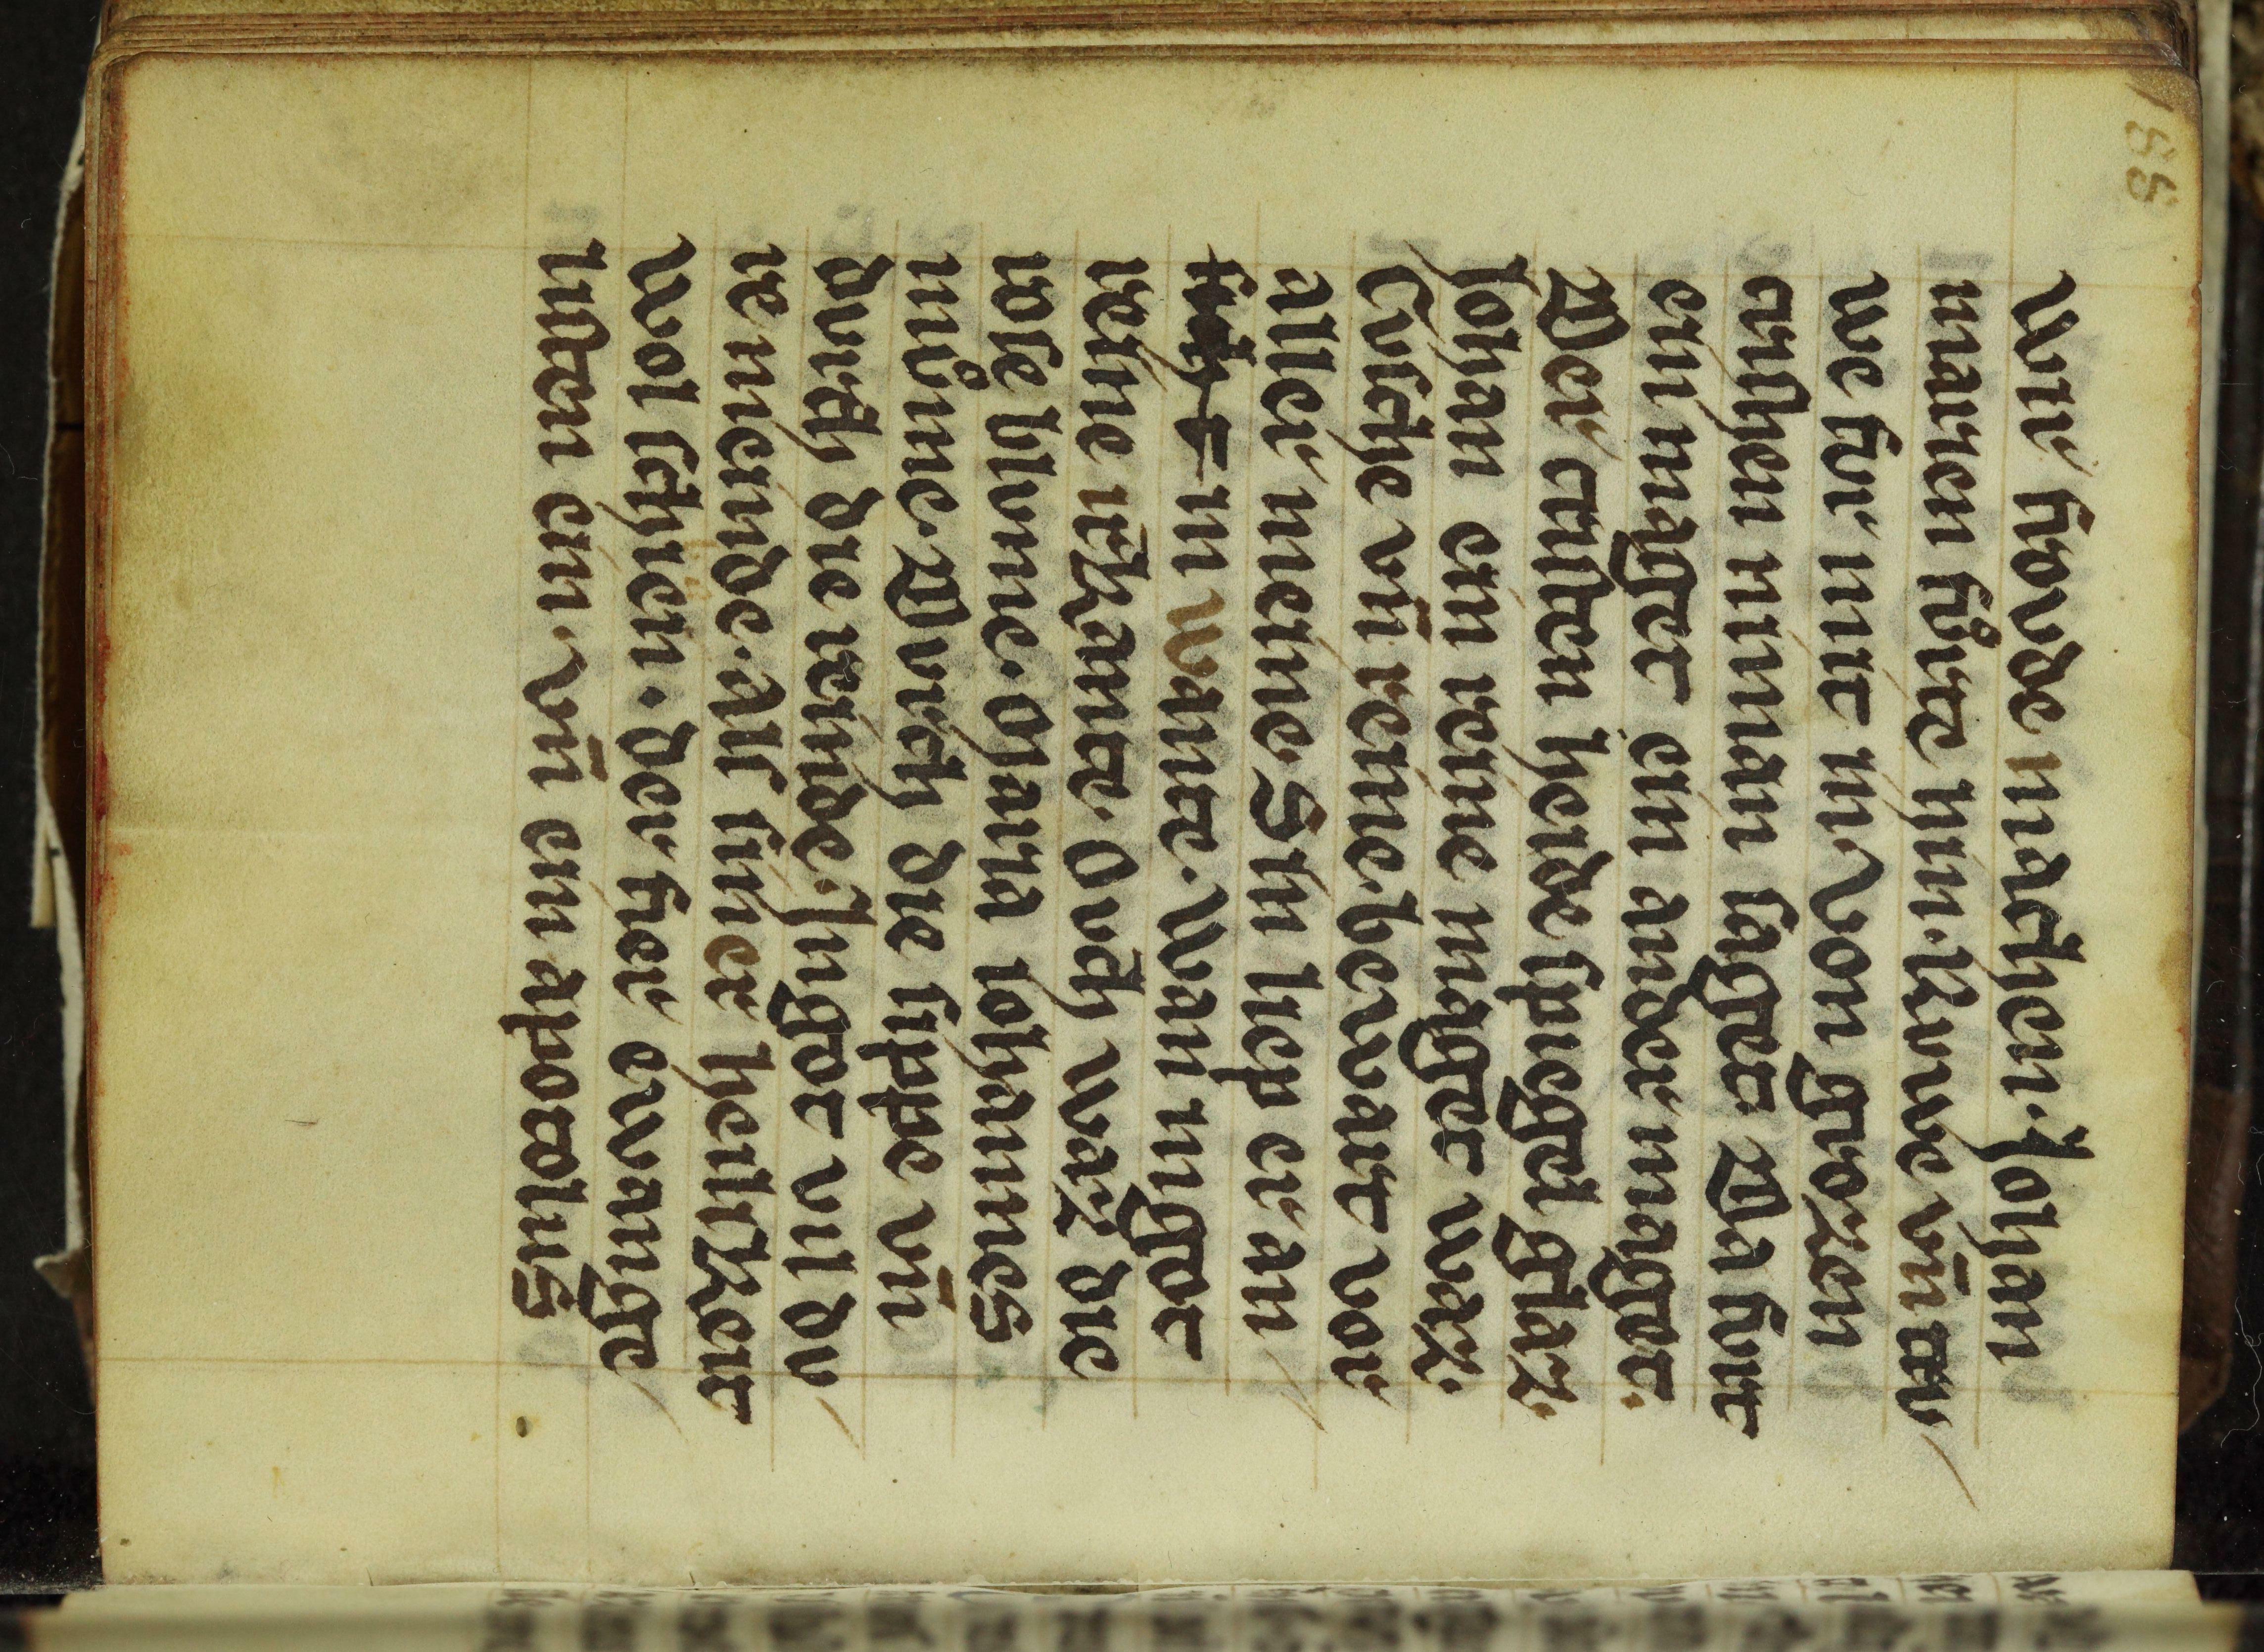 188
wir frovde machen. Johan
narren fůrte hin. Rvwe vñ trv
we fvr mit im. von grozen
cristen minnan saget. Da fvrt
ein maget ein ander maget.
Der cristen heide spiegel glaz.
Johan ein reine maget waz.
Cvsche vñ reine. bewart vor
aller meine. Sin liep er an
in wante. Wan in got
reine irkante. Ovch waz die
rose blvme. Maria iohannes
mvͦme. Dvrch die sippe vñ
dvrch die reinde. Jn got vil dv
re meinde. Als sin er heilikeit
wol schein. der fier ewange
listen ein. vñ ein apotolus